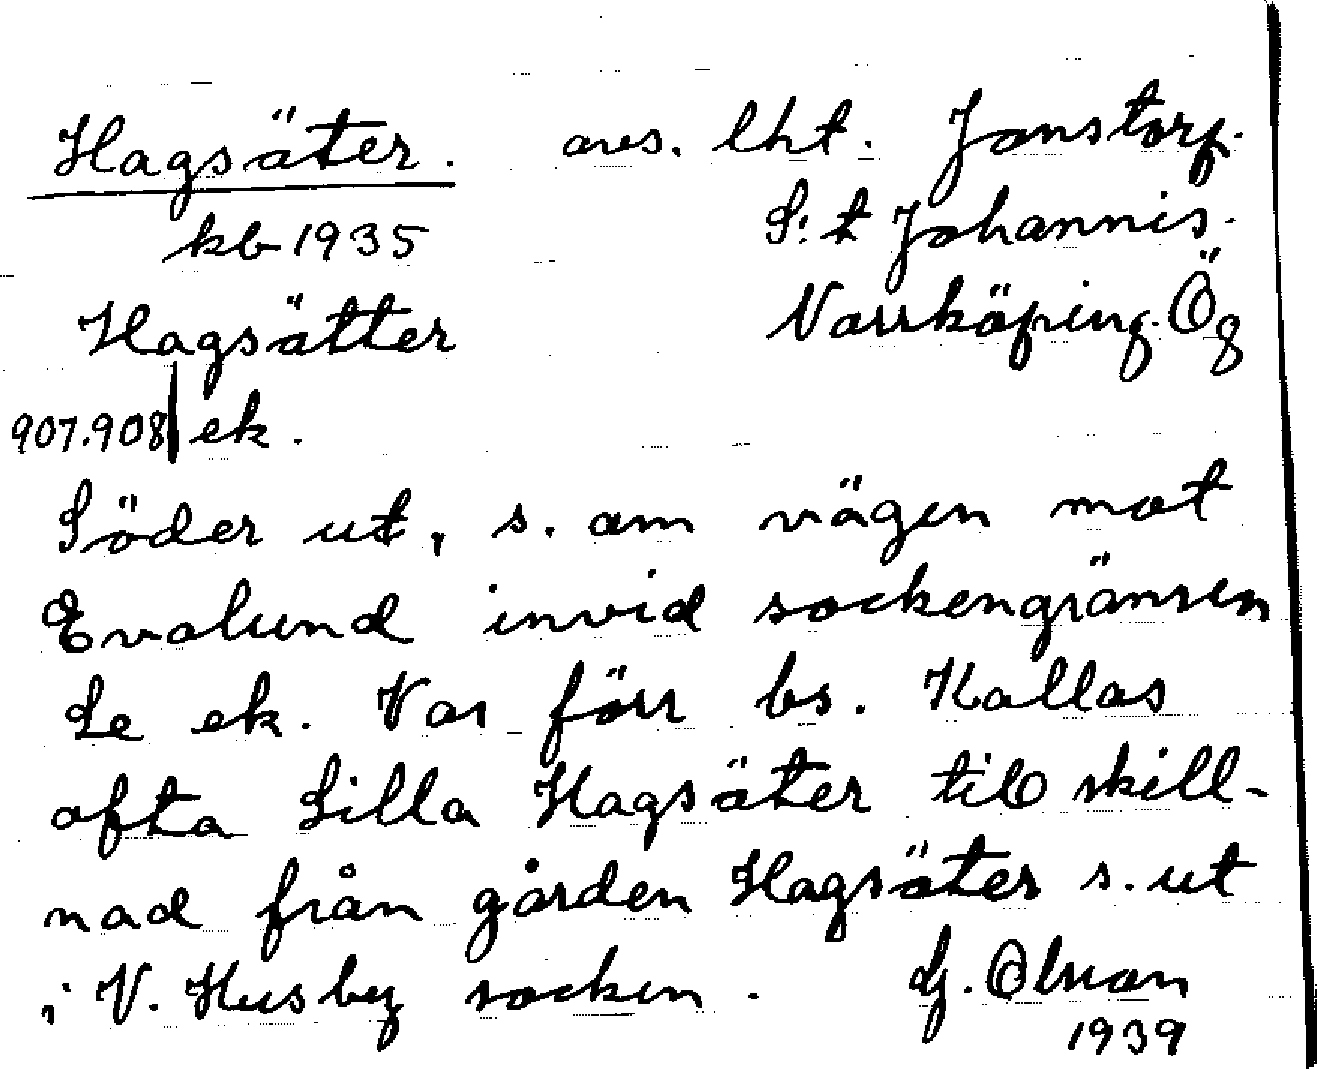 Hagsäter. avs. lht. Jonstorp.
kb 1935 S:t Johannis.
Hagsätter Norrköping. Ög
907.908 ek.
Söder ut, s. om vägen mot
Evalund invid sockengränsen
Le ek. Var förr bs. Kallas
ofta Lilla Hagsäter till skill-
nad från gården Hagsäter s. ut
i V. Husby socken. G. Olsson
1939